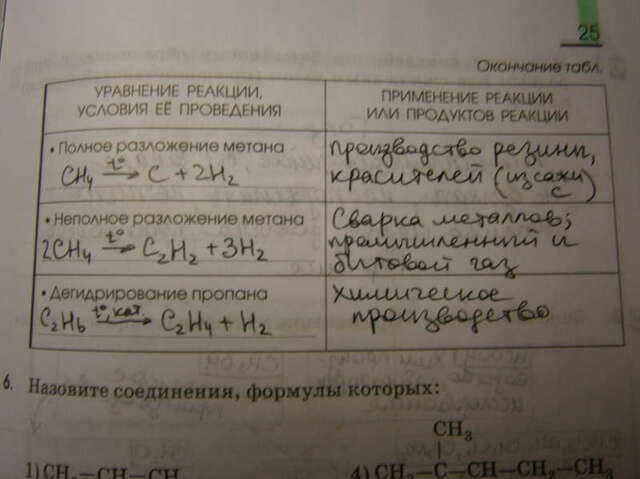 25
Окончание табл.
УРАВНЕНИЕ РЕАКЦИИ,
УСЛОВИЯ ЕЁ ПРОВЕДЕНИЯ
ПРИМЕНЕНИЕ РЕАКЦИИ
ИЛИ ПРОДУКТОВ РЕАКЦИИ
• Полное разложение метана
CH₄ t°→ C + 2H₂
производство резины,
красителей (из сажи)
C
• Неполное разложение метана
2CH₄ t°→ C₂H₂ + 3H₂
Сварка металлов;
промышленный и
бытовой газ
• Дегидрирование пропана
C₂H₆ t°, кат.→ C₂H₄ + H₂
Химическое
производство
6. Назовите соединения, формулы которых:
CH₃
1) CH₃—CH—CH
4) CH₃—C—CH—CH₂—CH₃